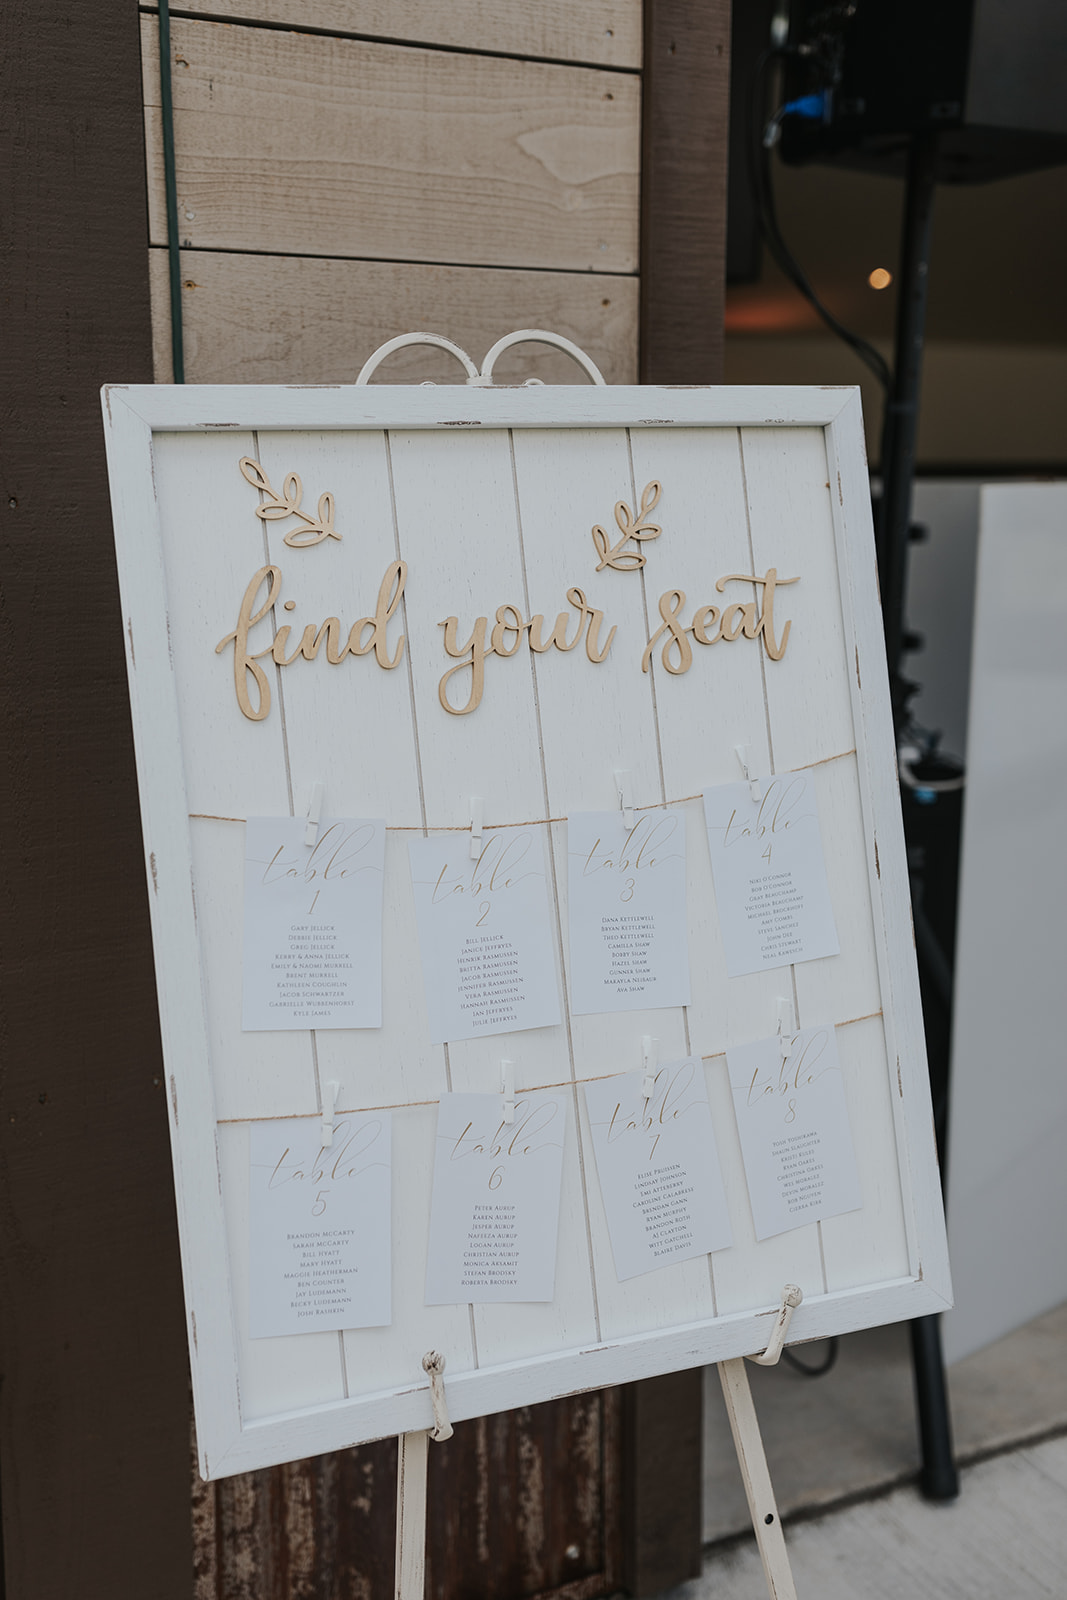 find your seat
table
1
Gary Jellick
Debbie Jellick
Greg Jellick
Kerry & Anna Jellick
Emily & Naomi Murrell
Brent Murrell
Kathleen Coughlin
Jacob Schwartzer
Gabrielle Wubbenhorst
Kyle James
table
2
Bill Jellick
Janice Jeffryes
Henrik Rasmussen
Britta Rasmussen
Jacob Rasmussen
Jennifer Rasmussen
Vera Rasmussen
Hannah Rasmussen
Ian Jeffryes
Julie Jeffryes
table
3
Dana Kettlewell
Bryan Kettlewell
Theo Kettlewell
Camilla Shaw
Bobby Shaw
Hazel Shaw
Gunner Shaw
Makayla
Ava Shaw
table
4
Niki O'Connor
Bob O'Connor
Gray Beauchamp
Victoria Beauchamp
Michael
Amy Combs
Steve Sanchez
John Dee
Chris Stewart
Neal
table
5
Brandon McCarty
Sarah McCarty
Bill Hyatt
Mary Hyatt
Maggie Heatherman
Ben Counter
Jay Ludemann
Becky Ludemann
Josh Rashkin
table
6
Peter Aurup
Karen Aurup
Jesper Aurup
Nafeeza Aurup
Logan Aurup
Christian Aurup
Monica Aksamit
Stefan Brodsky
Roberta Brodsky
table
7
Elise Pruissen
Lindsay Johnson
Emi Atteberry
Caroline Calabrese
Brendan Gann
Ryan Murphy
Brandon Roth
AJ Clayton
Witt Gatchell
Blaire Davis
table
8
Tosh Yoshikawa
Shaun Slaughter
Kristi
Ryan Oakes
Christina Oakes
Wes Morales
Devin Morales
Bob Nguyen
Cierra Kirk